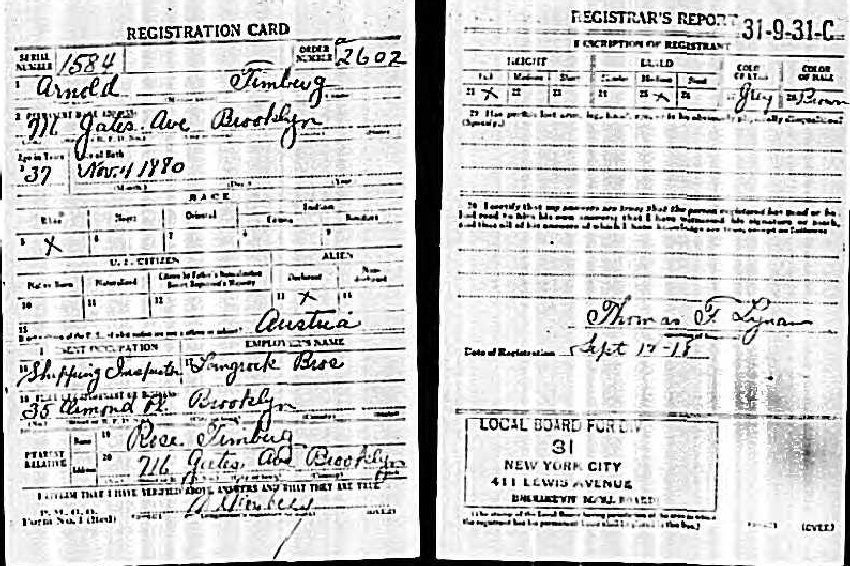 REGISTRATION CARD
SERIAL NUMBER 1584 ORDER NUMBER 2602
1 Arnold Timberg
2 PERMANENT HOME ADDRESS
Gates Ave Brooklyn
Age in Years Date of Birth
37 Nov. 1880
(Month.) (Day.) (Year.)
RACE
White Negro Oriental Indian
Citizen
5 X 6 7 8 9
U. S. CITIZEN ALIEN
Native Born Naturalized Citizen by Father's Naturalization Before Registrant's Majority Declarant Non-declarant
10 11 12 13 X 14
15 Austria
PRESENT OCCUPATION EMPLOYER'S NAME
16 Shipping Inspector 17 Langrock Bros
18 PLACE OF EMPLOYMENT OR BUSINESS
35 Pl. Brooklyn
NEAREST RELATIVE Name 19 Rose Timberg
Address 20 716 Gates Ave Brooklyn
I AFFIRM THAT I HAVE VERIFIED ABOVE ANSWERS AND THAT THEY ARE TRUE
P. M. G. O.
Form No. 1 (Red)
REGISTRAR'S REPORT 31-9-31-C
DESCRIPTION OF REGISTRANT
HEIGHT BUILD COLOR OF EYES COLOR OF HAIR
Tall Medium Short Slender Medium Stout
21 X 22 23 24 25 X 26 Grey 28 Brown
29 Has person lost arm, leg, hand, eye, or is he obviously physically disqualified?
(Specify.)
30 I certify that my answers are true; that the person registered has read or has
had read to him his own answers; that I have witnessed his signature or mark,
and that all of his answers of which I have knowledge are true, except as follows:
Thomas F.
Date of Registration Sept 12-18
LOCAL BOARD FOR DIV.
31
NEW YORK CITY
411 LEWIS AVENUE
(The stamp of the Local Board having jurisdiction of the area in which
the registrant has his permanent home shall be placed in this box.)
(OVER)